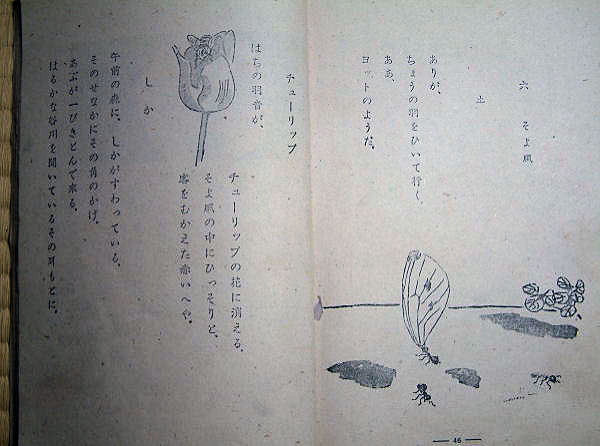 六　そよ風
土
ありが、
ちょうの羽をひいて行く。
ああ、
ヨットのようだ。
46
チューリップ
はちの羽音が、
チューリップの花に消える。
そよ風の中にひっそりと、
客をむかえた赤いへや。
しか
午前の森に、しかがすわっている。
そのせなかにその角のかげ。
あぶが一ぴきとんで来る。
はるかな谷川を聞いているその耳もとに。